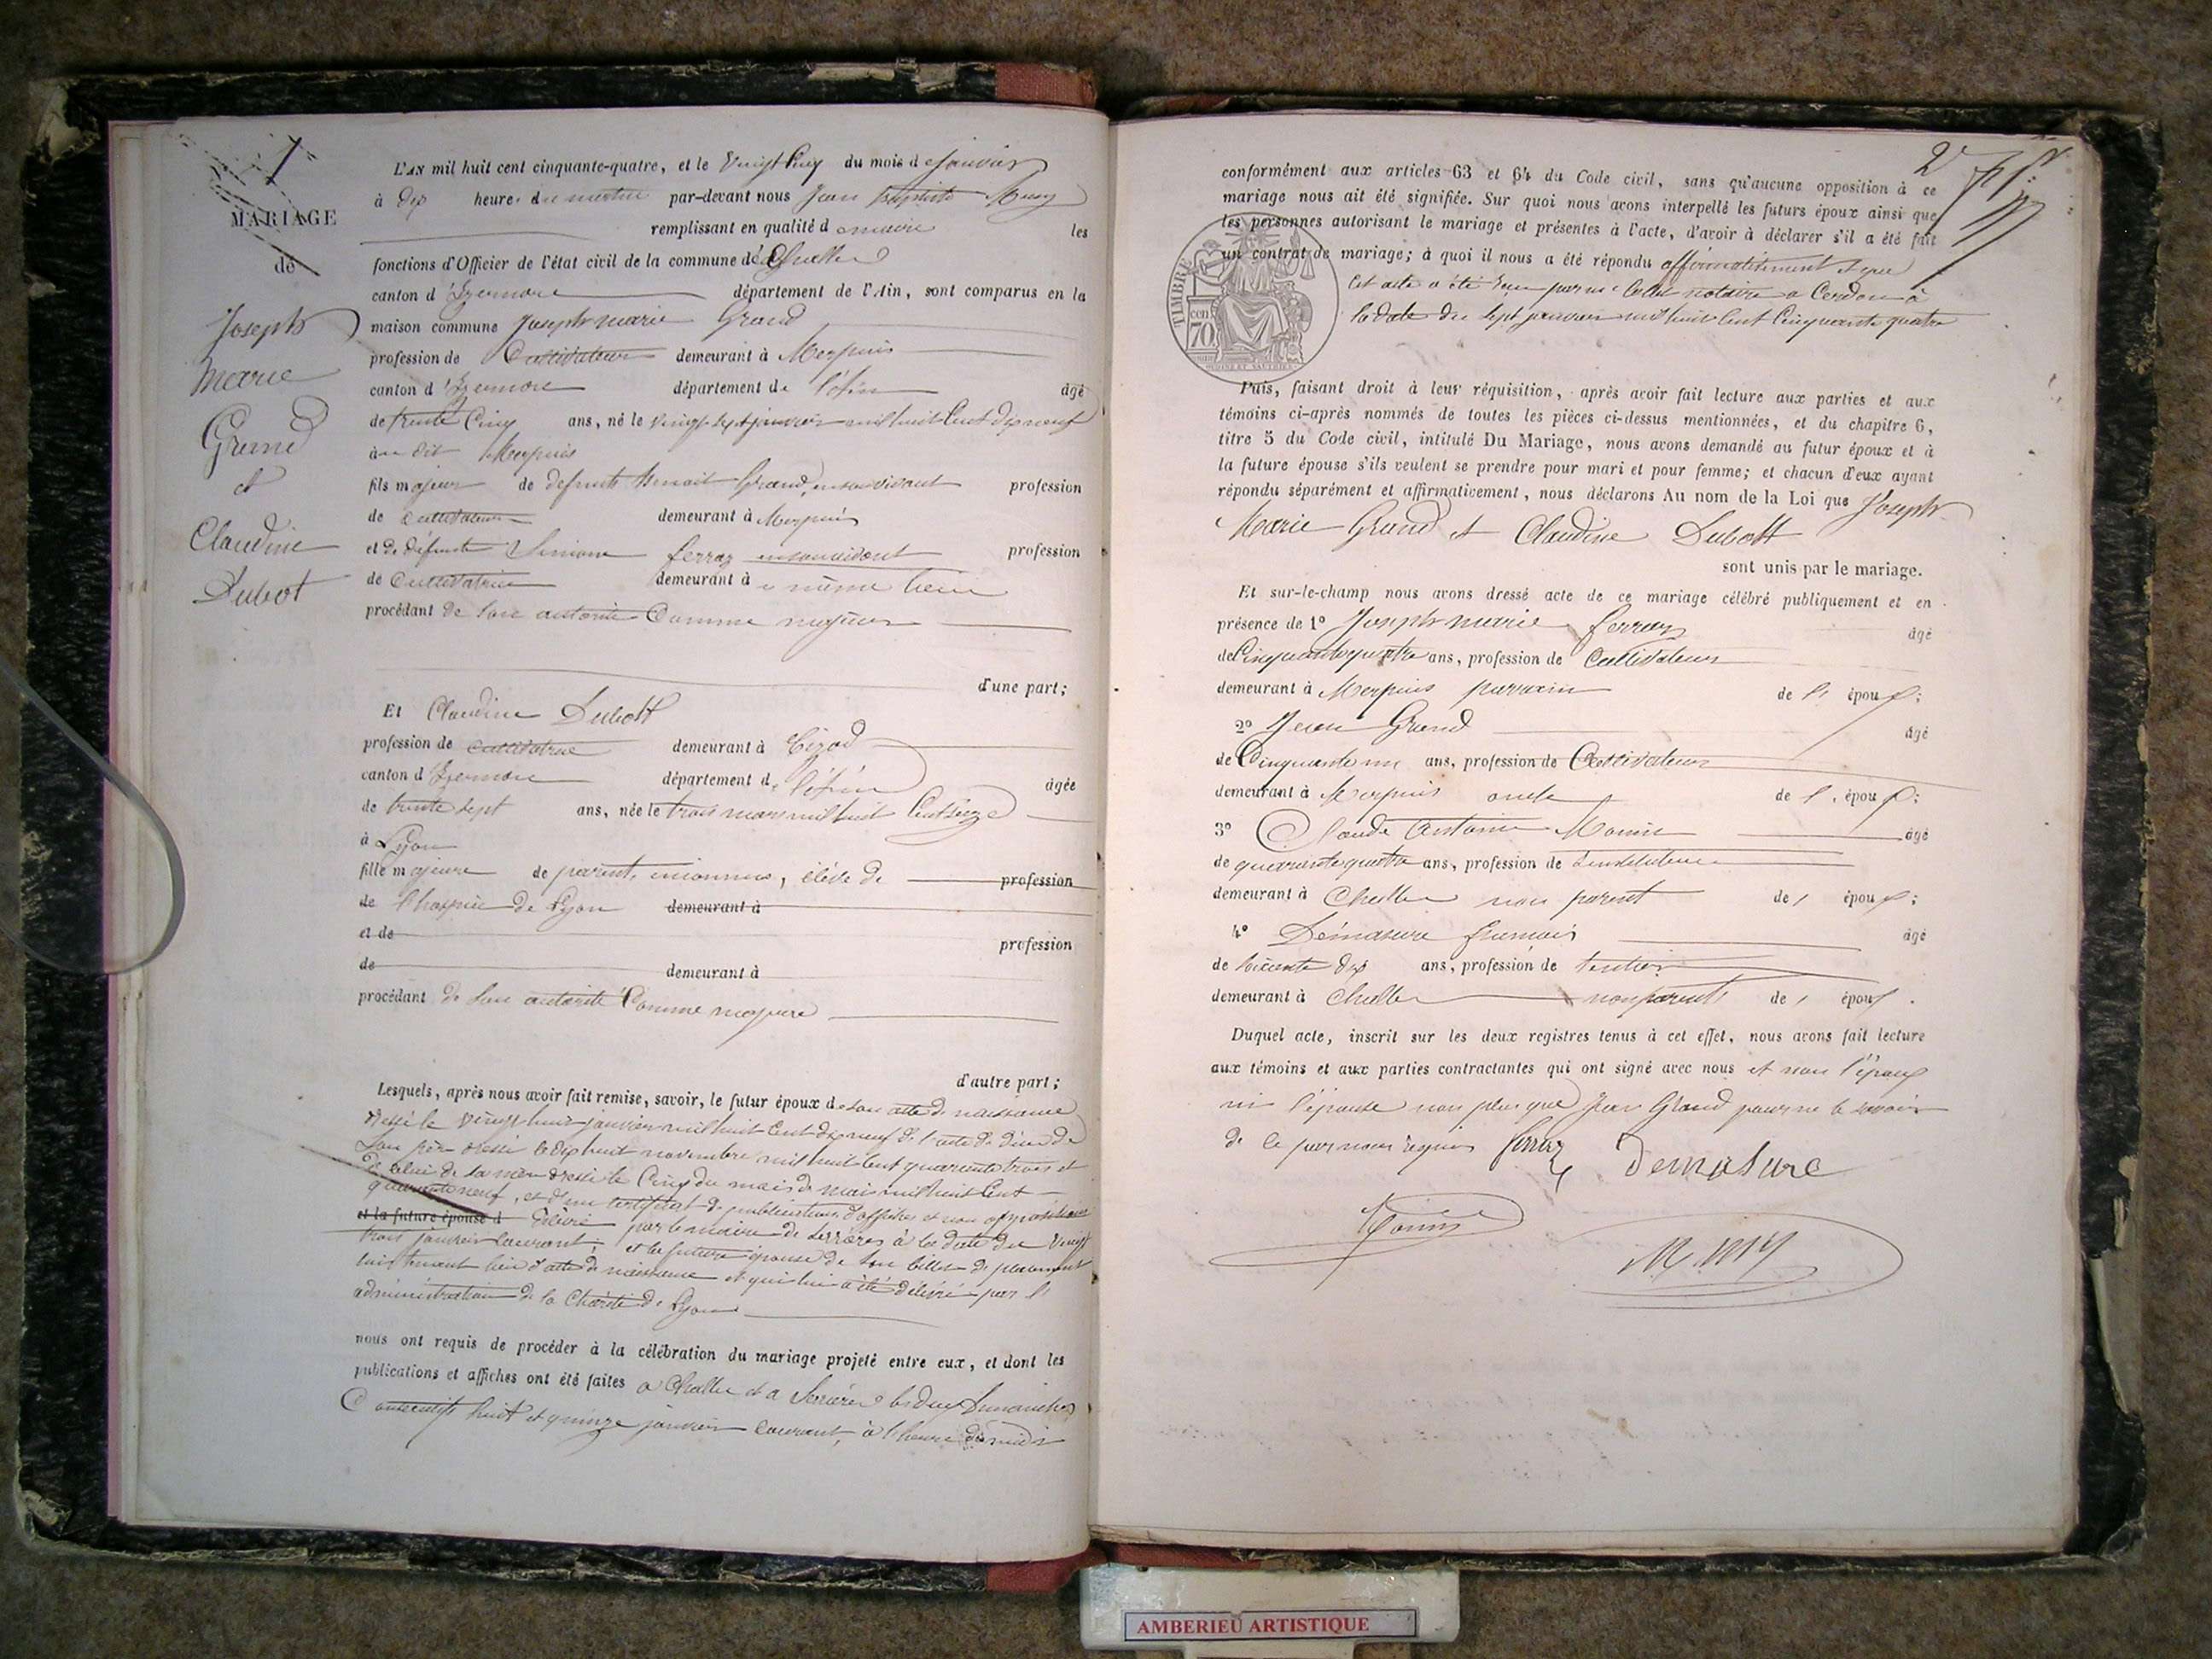 1
MARIAGE
de
Joseph
Marie
Grand
et
Claudine
Dubot
L'AN mil huit cent cinquante-quatre, et le vingt Cinq du mois de janvier
à dix heures du matin par-devant nous Jean Baptiste Mury
remplissant en qualité de maire les
fonctions d'Officier de l'état civil de la commune de Challes
canton d'Izernore département de l'Ain, sont comparus en la
maison commune Joseph marie Grand
profession de Cultivateur demeurant à Merpuis
canton d'Izernore département de l'Ain âgé
de trente Cinq ans, né le vingt sept janvier mil huit Cent dix neuf
à dit Merpuis
fils majeur de defunt Benoit Grand, en son vivant profession
de Cultivateur demeurant à Merpuis
et de défunte ferraz en son vivant profession
de Cultivatrice demeurant à même lieu
procédant de son autorité Comme majeur
d'une part;
Et Claudine Dubott
profession de cultivatrice demeurant à Cizod
canton d'Izernore département de l'Ain âgée
de trente sept ans, née le trois mars mil huit Cent seize
à Lyon
fille majeure de parents inconnus, élève de profession
de l'hospice de Lyon demeurant à
et de profession
de demeurant à
procédant de son autorité Comme majeure
d'autre part;
Lesquels, après nous avoir fait remise, savoir, le futur époux de son acte de naissance
dressé le vingt huit janvier mil huit Cent dix neuf de l'acte de décès de
son père dressé le dix huit novembre mil huit Cent quarante trois et
de celui de sa mère dressé le Cinq du mois de mai mil huit Cent
quarante neuf, et d'un certificat de publications d'affiches et non opposition
et la future épouse d délivré par le maire de Serrières à la date du vingt
trois janvier Courant, et la future épouse de son billet de placement
lui tenant lieu d'acte de naissance et qui lui a été délivré par l'
administration de la Charité de Lyon
nous ont requis de procéder à la célébration du mariage projeté entre eux, et dont les
publications et affiches ont été faites a Challes et a Serrières les deux Dimanches
Consecutifs huit et quinze janvier Courant, à l'heure de midi
2
conformément aux articles 63 et 64 du Code civil, sans qu'aucune opposition à ce
mariage nous ait été signifiée. Sur quoi nous avons interpellé les futurs époux ainsi que
les personnes autorisant le mariage et présentes à l'acte, d'avoir à déclarer s'il a été fait
un contrat de mariage; à quoi il nous a été répondu affirmativement et que
Cet acte a été reçu par me notaire a Cerdon à
la date du sept janvier mil huit Cent Cinquante quatre
TIMBRE
cen
70
Puis, faisant droit à leur réquisition, après avoir fait lecture aux parties et aux
témoins ci-après nommés de toutes les pièces ci-dessus mentionnées, et du chapitre 6,
titre 5 du Code civil, intitulé Du Mariage, nous avons demandé au futur époux et à
la future épouse s'ils veulent se prendre pour mari et pour femme; et chacun d'eux ayant
répondu séparément et affirmativement, nous déclarons Au nom de la Loi que Joseph
Marie Grand et Claudine Dubott
sont unis par le mariage.
Et sur-le-champ nous avons dressé acte de ce mariage célébré publiquement et en
présence de 1° Joseph marie ferraz âgé
de Cinquante quatre ans, profession de Cultivateur
demeurant à Merpuis parrain de l' époux;
2° Jean Grand âgé
de Cinquante un ans, profession de Cultivateur
demeurant à Merpuis oncle de l' époux;
3° Claude Antoine Monin âgé
de quarante quatre ans, profession de
demeurant à Challes non parent de l' époux;
4° Démasure françois âgé
de soixante dix ans, profession de rentier
demeurant à Challes non parent de l' époux.
Duquel acte, inscrit sur les deux registres tenus à cet effet, nous avons fait lecture
aux témoins et aux parties contractantes qui ont signé avec nous et non l'époux
ni l'épouse non plus que Jean Grand pour ne le savoir
de ce par nous requis ferraz Demasure
Monin
Mury
AMBERIEU ARTISTIQUE